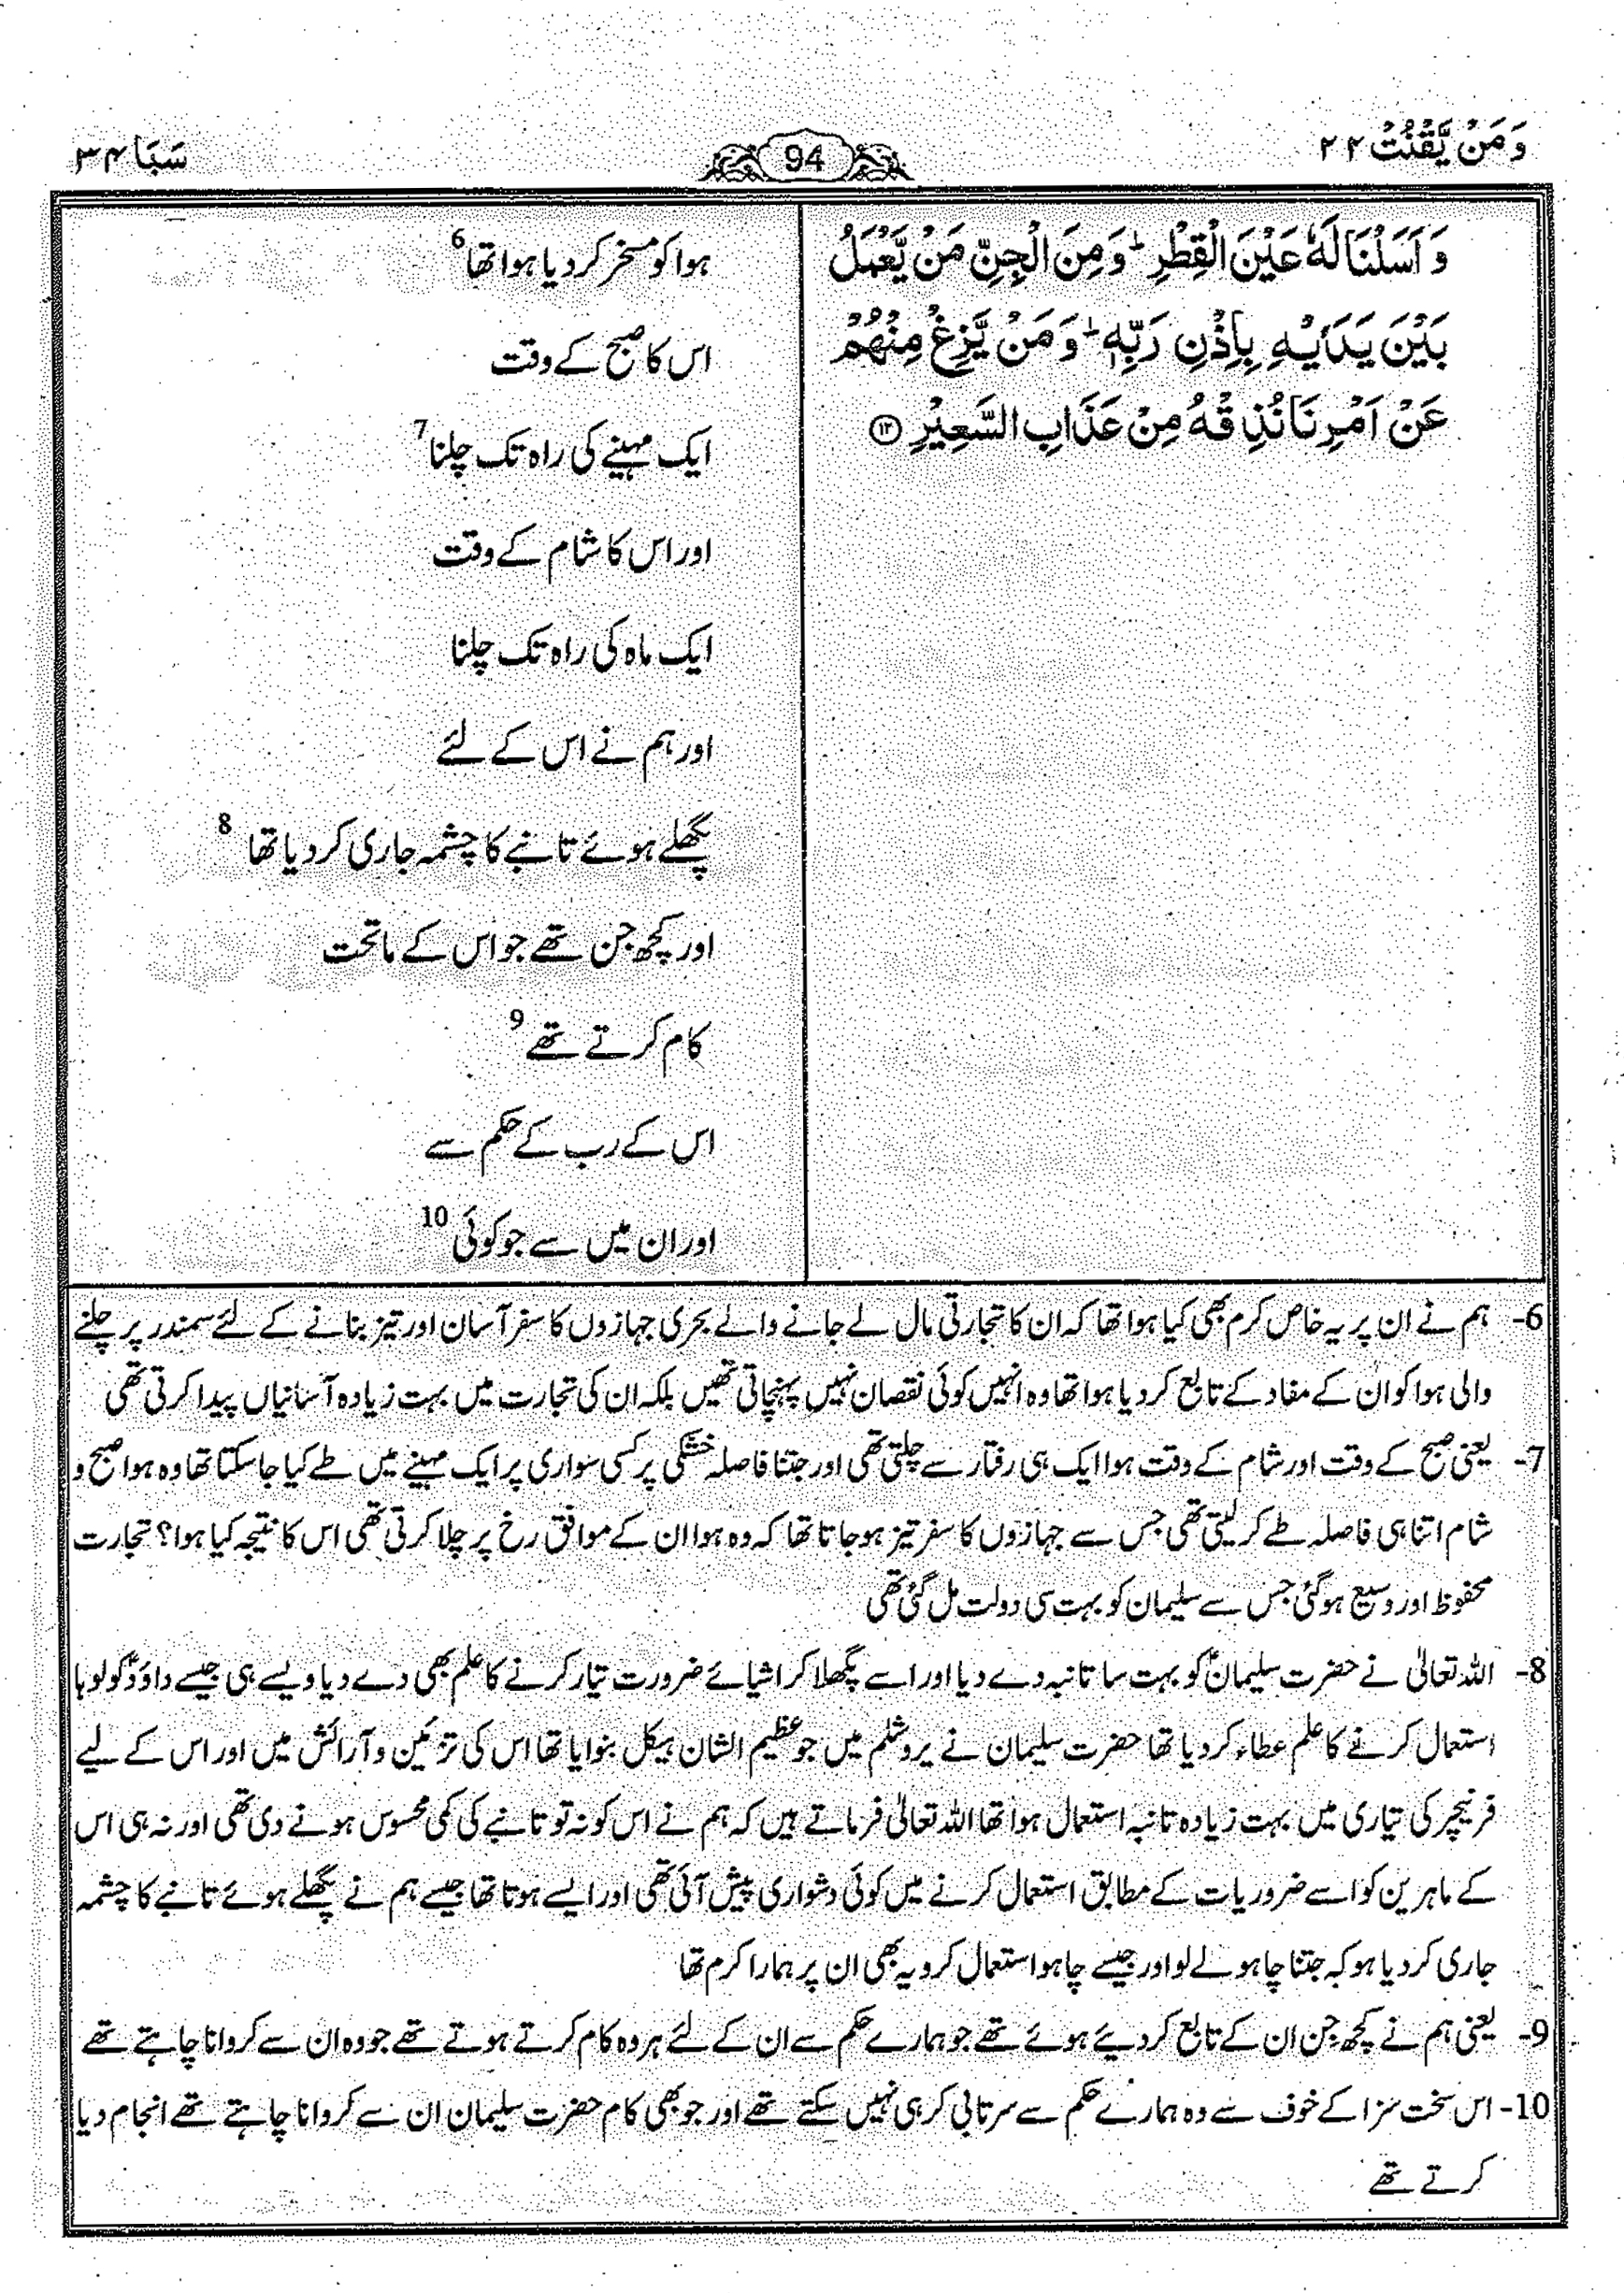 وَمَنْ يَّقْنُتْ ۲۲
94
سَبَا ۳۴
وَ اَسَلْنَا لَهٗ عَيْنَ الْقِطْرِ ؕ وَ مِنَ الْجِنِّ مَنْ يَّعْمَلُ
بَيْنَ يَدَيْهِ بِاِذْنِ رَبِّهٖ ؕ وَ مَنْ يَّزِغْ مِنْهُمْ
عَنْ اَمْرِنَا نُذِقْهُ مِنْ عَذَابِ السَّعِيْرِ ﴿۱۲﴾
ہوا کو مسخر کر دیا ہوا تھا 6
اس کا صبح کے وقت
ایک مہینے کی راہ تک چلنا 7
اور اس کا شام کے وقت
ایک ماہ کی راہ تک چلنا
اور ہم نے اس کے لئے
پگھلے ہوئے تانبے کا چشمہ جاری کر دیا تھا 8
اور کچھ جن تھے جو اس کے ماتحت
کام کرتے تھے 9
اس کے رب کے حکم سے
اور ان میں سے جو کوئی 10
6- ہم نے ان پر یہ خاص کرم بھی کیا ہوا تھا کہ ان کا تجارتی مال لے جانے والے بحری جہازوں کا سفر آسان اور تیز بنانے کے لئے سمندر پر چلنے
والی ہوا کو ان کے مفاد کے تابع کر دیا ہوا تھا وہ انہیں کوئی نقصان نہیں پہنچاتی تھیں بلکہ ان کی تجارت میں بہت زیادہ آسانیاں پیدا کرتی تھی
7- یعنی صبح کے وقت اور شام کے وقت ہوا ایک ہی رفتار سے چلتی تھی اور جتنا فاصلہ خشکی پر کسی سواری پر ایک مہینے میں طے کیا جا سکتا تھا وہ ہوا صبح و
شام اتنا ہی فاصلہ طے کر لیتی تھی جس سے جہازوں کا سفر تیز ہو جاتا تھا کہ وہ ہوا ان کے موافق رخ پر چلا کرتی تھی اس کا نتیجہ کیا ہوا؟ تجارت
محفوظ اور وسیع ہو گئی جس سے سلیمان کو بہت سی دولت مل گئی تھی
8- اللہ تعالیٰ نے حضرت سلیمانؑ کو بہت سا تانبہ دے دیا اور اسے پگھلا کر اشیائے ضرورت تیار کرنے کا علم بھی دے دیا ویسے ہی جیسے داؤدؑ کو لوہا
استعمال کرنے کا علم عطاء کر دیا تھا حضرت سلیمان نے یروشلم میں جو عظیم الشان ہیکل بنوایا تھا اس کی تزئین و آرائش میں اور اس کے لیے
فرنیچر کی تیاری میں بہت زیادہ تانبہ استعمال ہوا تھا اللہ تعالیٰ فرماتے ہیں کہ ہم نے اس کو نہ تو تانبے کی کمی محسوس ہونے دی تھی اور نہ ہی اس
کے ماہرین کو اسے ضروریات کے مطابق استعمال کرنے میں کوئی دشواری پیش آئی تھی اور ایسے ہوتا تھا جیسے ہم نے پگھلے ہوئے تانبے کا چشمہ
جاری کر دیا ہو کہ جتنا چاہو لے لو اور جیسے چاہو استعمال کرو یہ بھی ان پر ہمارا کرم تھا
9- یعنی ہم نے کچھ جن ان کے تابع کر دیئے ہوئے تھے جو ہمارے حکم سے ان کے لئے ہر وہ کام کرتے ہوتے تھے جو وہ ان سے کروانا چاہتے تھے
10- اس سخت سزا کے خوف سے وہ ہمارے حکم سے سرتابی کر ہی نہیں سکتے تھے اور جو بھی کام حضرت سلیمان ان سے کروانا چاہتے تھے انجام دیا
کرتے تھے